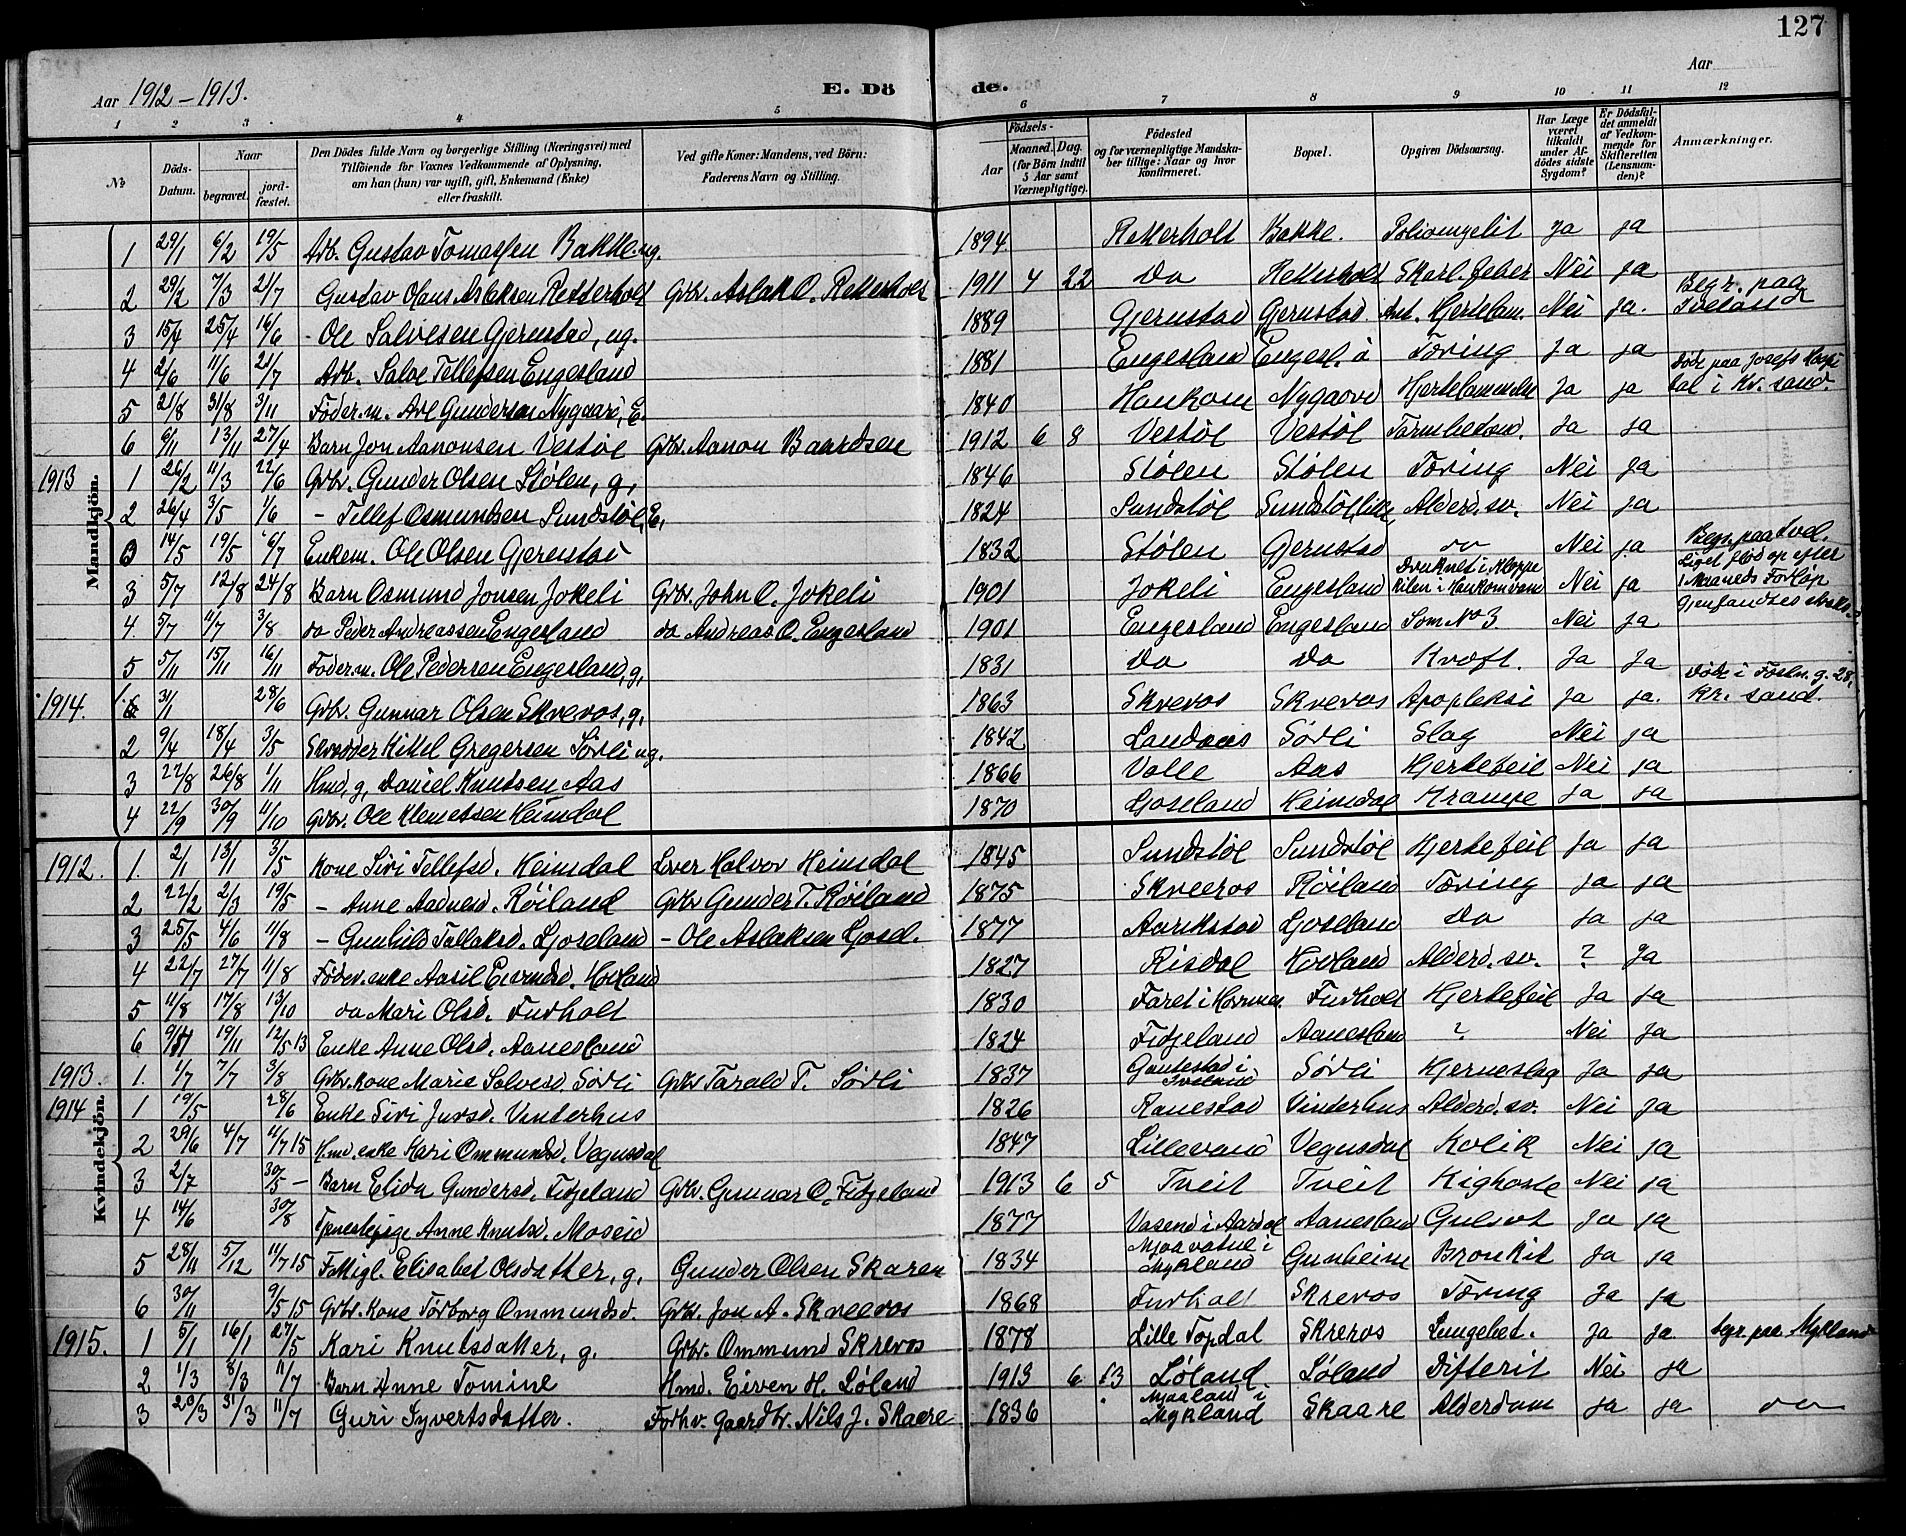 127
Aar 1912-1913. E. Dö de. Aar
1 2 3 4 5 6 7 8 9 10 11 12
No
Döds-Datum.
Naar begravet. jordfæstet.
Den Dödes fulde Navn og borgerlige Stilling (Næringsvei) med Tilföiende for Voxnes Vedkommende af Oplysning, om han (hun) var ugift, gift, Enkemand (Enke) eller fraskilt.
Ved gifte Koner: Mandens, ved Börn: Faderens Navn og Stilling.
Födsels- Aar Maaned. Dag. (for Börn indtil 5 Aar samt Værnepligtige).
Födested og for værnepligtige Mandskaber tillige: Naar og hvor konfirmeret.
Bopæl.
Opgiven Dödsaarsag.
Har Læge været tilkaldt under Afdödes sidste Sygdom?
Er Dödsfaldet anmeldt af Vedkommende for Skifteretten (Lensmanden)?
Anmærkninger.
Mandkjön.
1 29/1 6/2 19/5 Arb. Gustav Tomassen Bakke ug. 1894 Retterholt Bakke. Poliomyelit Ja ja
2 29/2 7/3 21/7 Gustav Olaus Aslaksen Retterholt Grbr. Aslak O. Retterholt 1911 4 22 Do Retterholt Skarl. feber Nei ja Begr. paa Iveland
3 15/4 25/4 16/6 - Ole Salvesen Gjerustad, ug. 1889 Gjerustad Gjerustad. Ant. Hjertelam. Nei ja.
4 2/6 11/6 21/7 Arb. Salve Tellefsen Engesland 1881 Engesland Engesl. Tæring Ja ja Död paa Josefs Hospital i Kr. sand.
5 21/8 31/8 3/11 Föder.m. Avl Gundersen Nygaard, E. 1840 Haukom Nygaard Hjertelammelse Ja ja
6 6/11 13/11 27/4 Barn Jon Aanonsen Vestøl Grbr. Aanon Baardsen 1912 6 8 Vestøl Vestøl Tarmbetænd. Ja ja
1913 1 26/2 11/3 22/6 Grbr. Gunder Olsen Stølen, g, 1846 Stølen Stølen Tæring Nei Ja
2 26/4 3/5 1/6 - Tellef Osmundsen Sundstøl, E, 1824 Sundstøl Sundstøl Alderd. sv. Nei Ja
14/5 19/5 6/7 Enkem. Ole Olsen Gjerustad 1832 Stølen Gjerustad do Nei ja Begr. paa
3 5/7 12/8 24/8 Barn Osmund Jonsen Jokeli Grbr. John O. Jokeli 1901 Jokeli Engesland Druknet i Kloppekilen i Haukomvand Nei ja Liget flöd op efter 1 Maaneds Forløp
4 5/7 11/7 3/8 do Peder Andreassen Engesland do Andreas O. Engesland 1901 Engesland Engesland Som No 3 Nei Ja Gjenfandtes straks
5 5/11 15/11 16/11 Föder.m. Ole Pedersen Engesland, g, 1831 Do Do Kræft. Ja Ja
1914. 1. 3/1 28/6 Grbr. Gunnar Olsen Skreros, g, 1863 Skreros Skreros Apopleksi Ja ja. Död i Festn. g. 28, Kr. sand.
2 9/4 18/4 3/5 Skrædder Kittel Gregersen Sørli ug. 1842 Landaas Sørli Slag Nei ja
3 22/8 26/8 1/11 Hmd, g, Daniel Knutsen Aas 1866 Valle Aas Hjertefeil Nei ja
4 22/9 30/9 11/10 Grbr. Ole Klemetsen Heimdal 1870 Ljosland Heimdal Krampe Ja ja
Kvindekjön.
1912. 1. 2/1 13/1 3/5 Kone Siri Tellefsd. Heimdal Lærer Halvor Heimdal 1845 Sundstøl Sundstøl Hjertefeil Ja ja
2 22/2 2/3 19/5 - Anne Aadnesd. Røiland Grbr Gunder T. Røiland 1875 Skreros Røiland Tæring ja ja
3 25/5 4/6 11/8 - Gunhild Tallaksd. Ljosland - Ole Aslaksen Ljosl. 1877 Aarikstad Ljosland Do ja ja
4 22/7 27/7 11/8 Föder.enke Aasil Eivindsd. Hovland 1827 Risdal Hovland Alderd. sv. ? Ja
5 11/8 17/8 13/10 do Mari Olsd. Furholt 1830 Faret i Furholt Hjertefeil Ja ja
6 9/11 19/11 12/5 13 Enke Anne Olsd. Aanesland 1824 Fidjeland Aanesland ? Nei ja
1913. 1. 1/7 7/7 3/8 Grbr.kone Marie Salvesd. Sørli Grbr Tarald T. Sørli 1837 Gautestad i Iveland Sørli Hjerneslag Ja ja
1914 1 19/5 28/6 Enke Siri Jursd. Vinterhus 1826 Ranestad Vinterhus Alderd. sv. Nei ja
2 29/6 4/7 11/7 15 Hmd.enke Kari Ommundsd. Vegusdal 1847 Lillevand Vegusdal Kolik Nei ja
3 2/7 30/5 - Barn Elida Gundersd. Fidjeland Grbr. Gunnar O. Fidjeland 1913 6 5 Tveit Tveit Kighoste Nei ja
4 14/6 30/8 Tjenestepige Anne Knutsd. Moseid 1877 Vasend i Aardal Aanesland Gulsot ja ja
5 28/11 5/12 11/7 15 Fattigl. Elisabet Olsdatter, g, Gunder Olsen Skaren 1834 Mjaavatne i Mykland Gunheim Bronkit Ja ja
6 30/11 9/5 15 Grbr. Kone Torborg Ommundsd. Grbr. Jon A. Skreros 1868 Furholt Skreros Tæring Ja ja
1915. 1 5/1 16/1 27/5 Kari Knutsdatter, g. Grbr. Ommund Skreros 1878 Lille Topdal Skreros Lungebet. Ja ja begr. paa Mykland
2 1/3 8/3 11/7 Barn Anne Tomine Hmd. Eiven H. Løland 1913 6 13 Løland Løland Difterit Nei ja
3 20/3 31/3 11/7 Guri Syvertsdatter. Forhv. gaardbr. Nils J. Skaare 1836 Mjaaland i Mykland Skaare Alderdom ja ja do